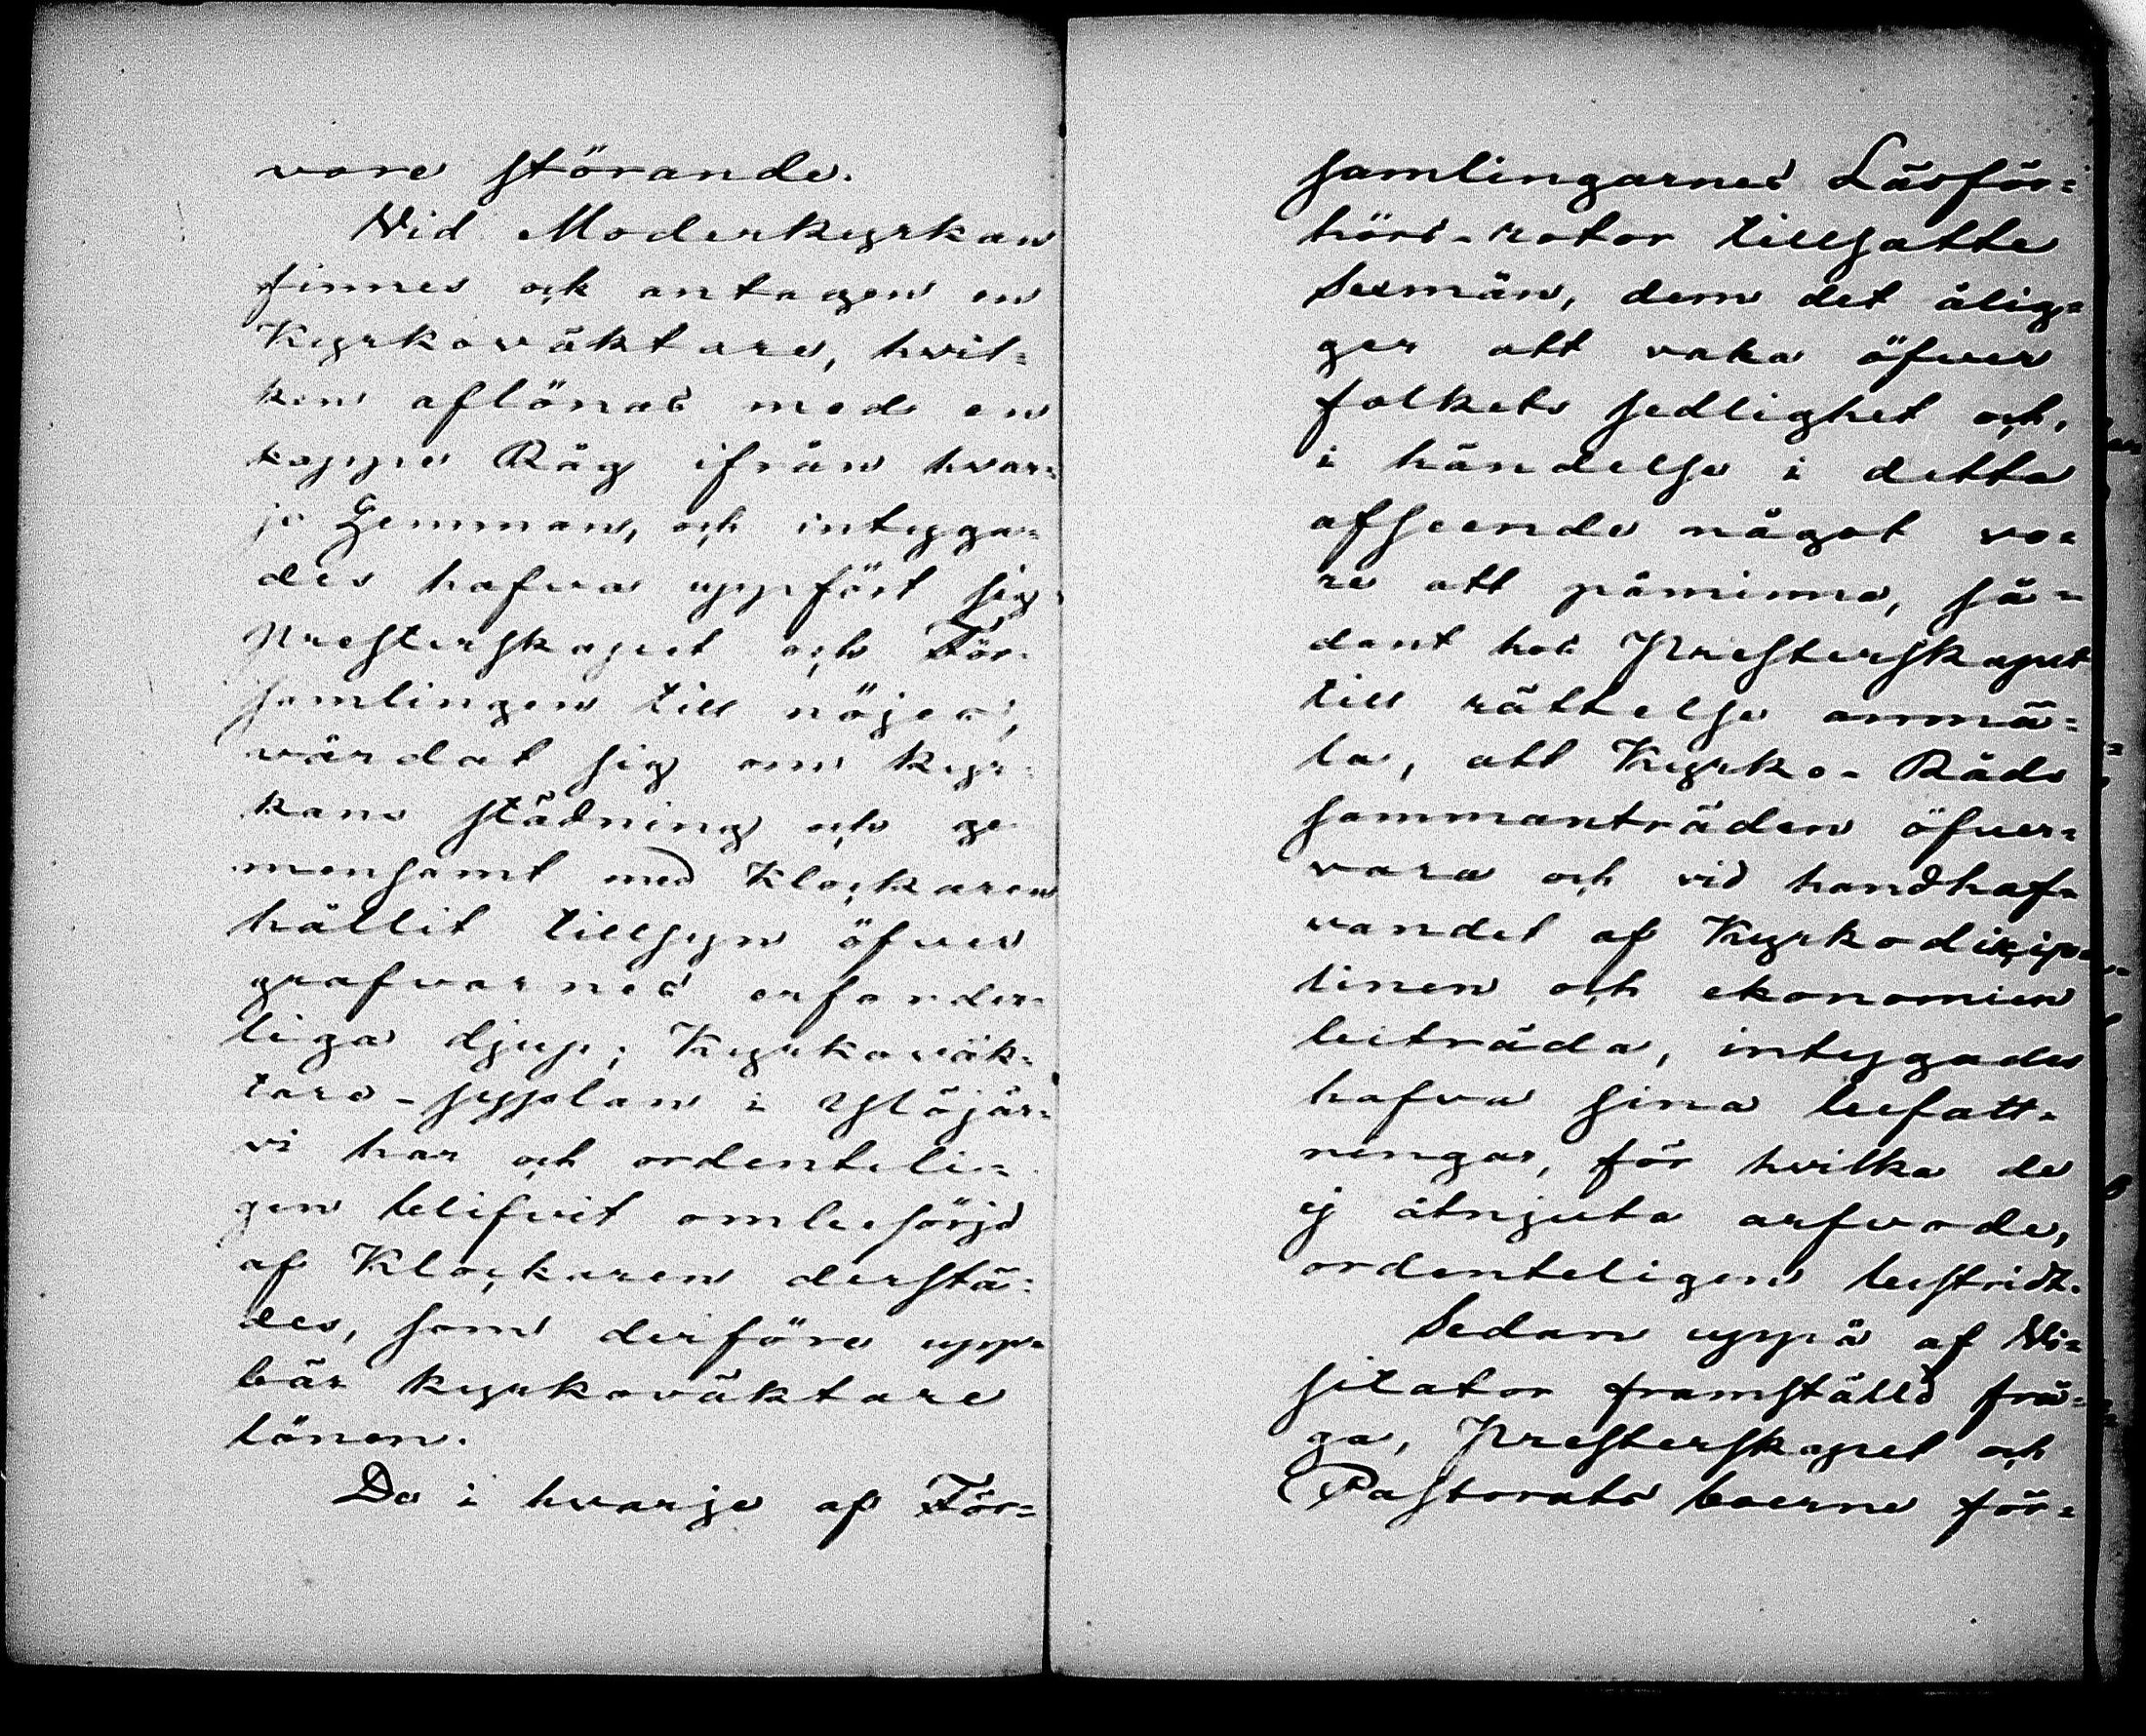 vore störande.
Vid Moderkyrkan
finnes ock antagen en
Kyrkoväktare, hvil=
ken aflönas med en
kappe Råg ifrån hvar=
je Hemman, och intyga=
des hafva uppfört sig
Presterskapet och För=
samlingen till nöjes,
vårdat sig om kyr=
kans städning och ge
mensamt med Klockaren
hållit tillsyn öfver
grafvarnes erforder=
liga djup; Kyrkoväk=
tare-sysslan i Ylöjär=
vi har och ordenteli=
gen blifvit ombesörjd
af Klockaren derstä=
des, som derföre upp=
bär kyrkoväktare
lönen.
De i hvarje af För=
samlingarnes Läsför=
hörs-rotor tillsatte
Sexmän, dem det ålig=
ger att vaka öfver
folkets sedlighet och,
i händelse i detta
afseende något vo=
re att påminna, så=
dant hos Presterskapet
till rättelse anmä=
la, att Kyrko-Råds
sammanträden öfver=
vara och vid handhaf=
vandet af Kyrkodiscip=
linen och ekonomien
beiträda, intygades
hafva sina befatt=
ningar, för hvilka de
ej åtnjuta arfvode,
ordenteligen bestridt.
Sedan uppå af Vi=
sitator framställd frå=
ga, Presterskapet och
Pastorats boerne för=